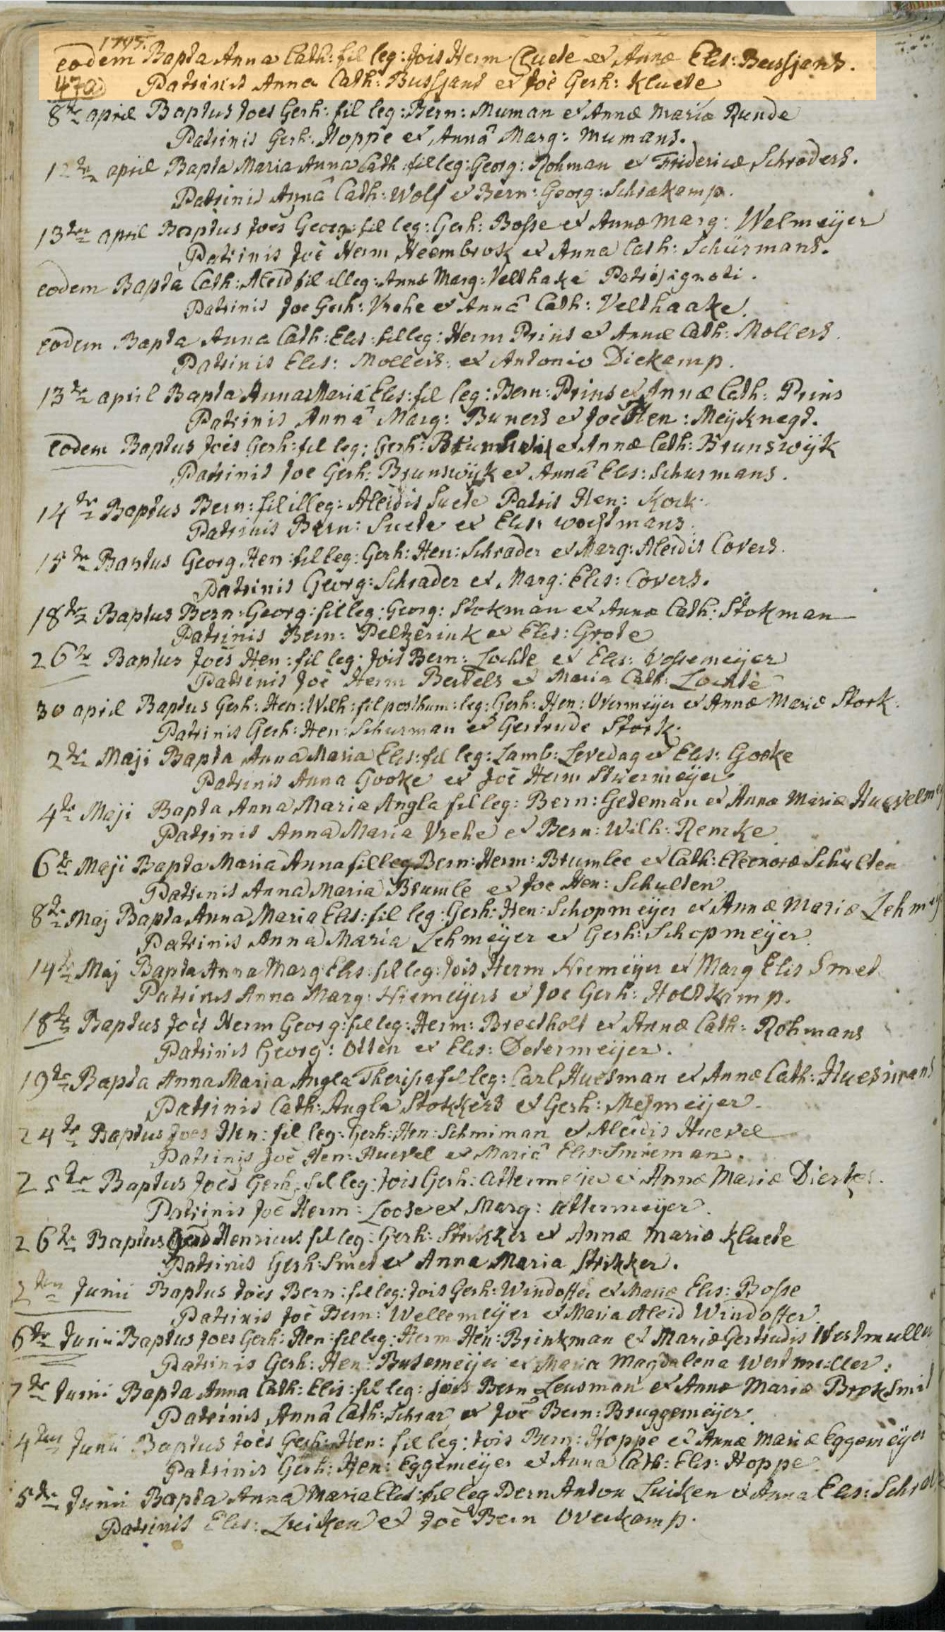 1795.
eodem Bapta Anna Cath: fil leg: Jois Herm Cluete et Annæ Elis: Bussjans.
47a Patrinis Anna Cath: Bussjans et Joê Gerh: Kluete
8va april Baptus Joes Gerh: fil leg: Bern: Muman et Annæ Mariæ Runde
Patrinis Gerh: Hoppe et Annâ Marg: Mumans.
april Bapta Maria Anna Cath: fil leg: Georg: Rohman et Fridericæ Schroders.
Patrinis Annâ Cath: Wolf et Bern: Georg: Schrakamp.
13tia april Baptus Joes Georg: fil leg: Gerh: Bosse et Annæ Marg: Welmeijer
Patrinis Joê Herm Heembrok et Anna Cath: Schürmans.
eodem Bapta Cath: Aleid fil illeg: Annæ Marg: Velthake Patris ignoti.
Patrinis Joe Gerh: Vrehe et Annâ Cath: Velthaake.
eodem Bapta Anna Cath: Elis fil leg: Herm Prins et Annæ Cath: Mollers.
Patrinis Elis: Mollers. et Antonio Diekamp.
13tia april Bapta Anna Maria Elis: fil leg: Bern: Prins et Annæ Cath: Prins
Patrinis Annâ Marg: Buners et Joe Hen: Meijknegt.
eodem Baptus Jois Gerh: fil leg: Gerh: et Annæ Cath: Brunswijk
Patrinis Joe Gerh: Brunswijk et Annâ Elis: Schurmans.
14ta Baptus Bern: fil illeg: Aleidis Suete Patris Hen: Kock.
Patrinis Bern: Suete et Elis: Woestmans.
15ta Baptus Georg Hen: fil leg: Gerh: Hen: Schrader et Marg: Aleidis Covers.
Patrinis Georg: Schrader et Marg: Elis: Covers.
18va Baptus Bern: Georg: fil leg: Georg: Stokman et Annæ Cath: Stokman
Patrinis Bern: Peltzerink et Elis: Grote
26ta Baptus Joês Hen: fil leg: Jois Bern: Lochte et Elis: Vossemeijer
Patrinis Joê Herm Bertels et Maria Cath: Lochte
30 april Baptus Gerh: Hen: Wilh: fil posthum: leg: Gerh: Hen: Overmeijer et Annæ Mariæ Stork.
Patrinis Gerh: Hen: Schurman et Gertrude Stork.
2da Maji Bapta Anna Maria Elis: fil leg: Lamb: Levedag et Elis: Gooke
Patrinis Anna Gooke et Joê Herm Stuermeijer
4ta Maji Bapta Anna Maria Angla fil leg: Bern: Gedeman et Annæ Mariæ
Patrinis Anna Maria Vrehe et Bern: Wilh: Remke
6ta Maji Bapta Maria Anna fil leg Bern: Herm: Brumlee et Cath: Eleonoræ Schulten
Patrinis Anna Maria Brumle et Joe Hen: Schulten
8va Maj Bapta Anna Maria Elis: fil leg: Gerh: Hen: Schopmeijer et Annæ Mariæ
Patrinis Anna Maria Lehmeijer et Gerh: Schopmeijer.
14ta Maj Bapta Anna Marg Elis: fil leg: Jois Herm Niemeijer et Marg Elis Smet
Patrinis Anna Marg: Niemeijers et Joe Gerh: Holtkamp.
18va Baptus Joês Herm Georg: fil leg: Herm: Breetholt et Annæ Cath: Rohmans
Patrinis Georg: Otten et Elis: Determeijer.
19na Bapta Anna Maria Angla Therisia fil leg: Carl Huesman et Annæ Cath: Huesmans
Patrinis Cath: Angla Stokkers et Gerh: Mesmeijer.
24ta Baptus Joes Hen: fil leg: Gerh: Hen: Schniman et Aleidis Huevel
Patrinis Joê Hen: Huevel et Mariâ Elis
25ta Baptus Joês Gerh: fil leg: Jois Gerh: Attermeijer et Annæ Mariæ
Patrinis Joê Herm: Loose et Marg: Attermeijer.
26ta Baptus Henricus fil leg: Gerh: Strikker et Annæ Mariæ Kluete
Patrinis Gerh: Smet et Anna Maria Strikker.
Junii Baptus Joês Bern: fil leg: Jois Gerh: Windoffer et Mariæ Elis: Bosse
Patrinis Joê Bern: Wellemeijer et Maria Aleid Windoffer
6ta Junii Baptus Joes Gerh: Hen: fil leg: Herm Hen: Brinkman et Mariæ Gertrudis
Patrinis Gerh: Hen: Butemeijer et Maria Magdalena Westmuller.
7ma Junii Bapta Anna Cath: Elis: fil leg: Jois Bern Leusman et Annæ Mariæ
Patrinis Annâ Cath: Schrar et Joê Bern: Bruggemeijer.
Junii Baptus Joês Gerh: Hen: fil leg: Jois Bern: Hoppe et Annæ Mariæ Eggemeijer
Patrinis Gerh: Hen: Eggemeijer et Anna Cath: Elis: Hoppe
Junii Bapta Anna Maria Elis: fil leg Bern Anton Luiken et Anna Elis:
Patrinis Elis: Luiken et Joê Bern Overkamp.